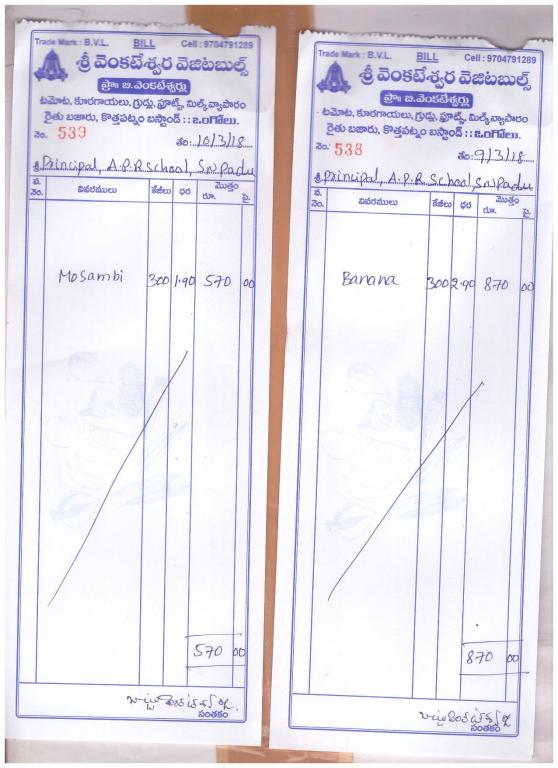 Trade Mark : B.V.L. BILL Cell : 9704791289
శ్రీ వెంకటేశ్వర వెజిటబుల్స్
ప్రొః బి.వెంకటేశ్వర్లు
టమోట, కూరగాయలు, గ్రుడ్లు, ఫ్రూట్స్, మిల్క్ వ్యాపారం
రైతు బజారు, కొత్తపట్నం బస్టాండ్ :: ఒంగోలు.
నెం. 539 తేది: 10/3/18
శ్రీ Principal, A.P.R School, S.N. Padu
వ. నెం. వివరములు కేజీలు ధర మొత్తం రూ. పై.
Mosambi 300 1.90 570 00
570 00
సంతకం
Trade Mark : B.V.L. BILL Cell : 9704791289
శ్రీ వెంకటేశ్వర వెజిటబుల్స్
ప్రొః బి.వెంకటేశ్వర్లు
టమోట, కూరగాయలు, గ్రుడ్లు, ఫ్రూట్స్, మిల్క్ వ్యాపారం
రైతు బజారు, కొత్తపట్నం బస్టాండ్ :: ఒంగోలు.
నెం. 538 తేది: 9/3/18
శ్రీ Principal, A.P.R. School, S.N. Padu
వ. నెం. వివరములు కేజీలు ధర మొత్తం రూ. పై.
Banana 300 2.90 870 00
870 00
సంతకం